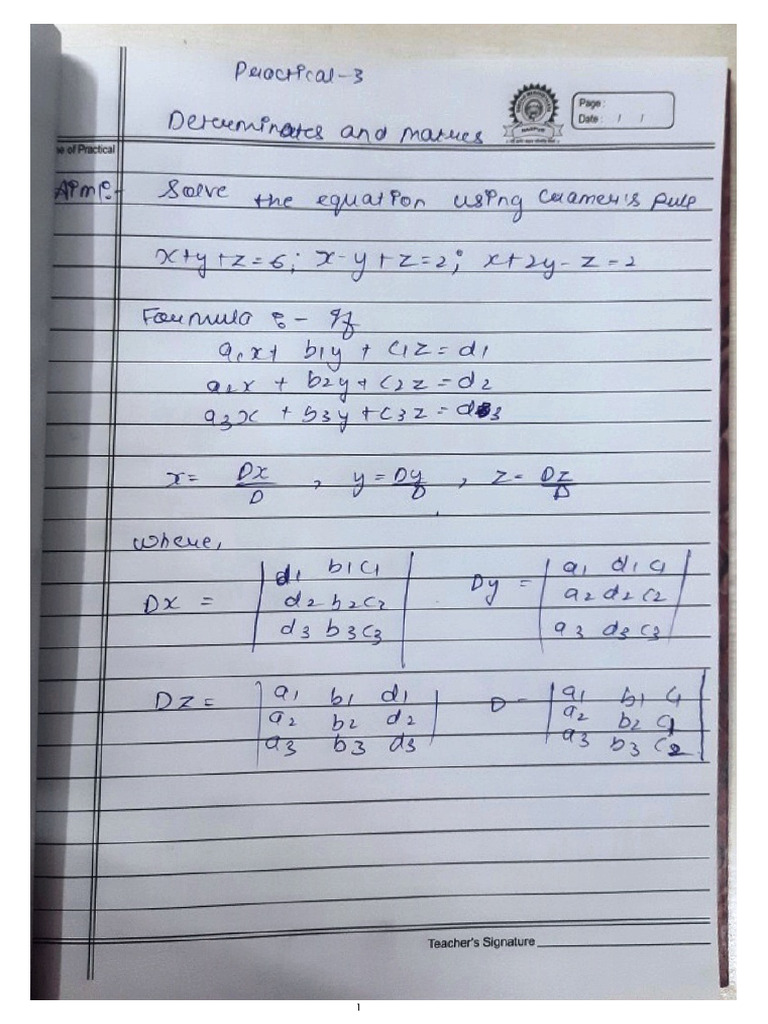 Practical-3
Page :
Date : / /
Determinates and matrues
e of Practical
Aim:- Solve the equation using Cramer's Rule
x+y+z=6; x-y+z=2; x+2y-z=2
Formula :- If
a1x+ b1y + c1z = d1
a2x + b2y+ c2z = d2
a3x + b3y + c3z = d3
x= Dx/D , y = Dy/D , z= Dz/D
where,
Dx = | d1 b1 c1 | Dy = | a1 d1 c1 |
| d2 b2 c2 | | a2 d2 c2 |
| d3 b3 c3 | | a3 d3 c3 |
Dz = | a1 b1 d1 | D = | a1 b1 c1 |
| a2 b2 d2 | | a2 b2 c1 |
| a3 b3 d3 | | a3 b3 c2 |
Teacher's Signature
1